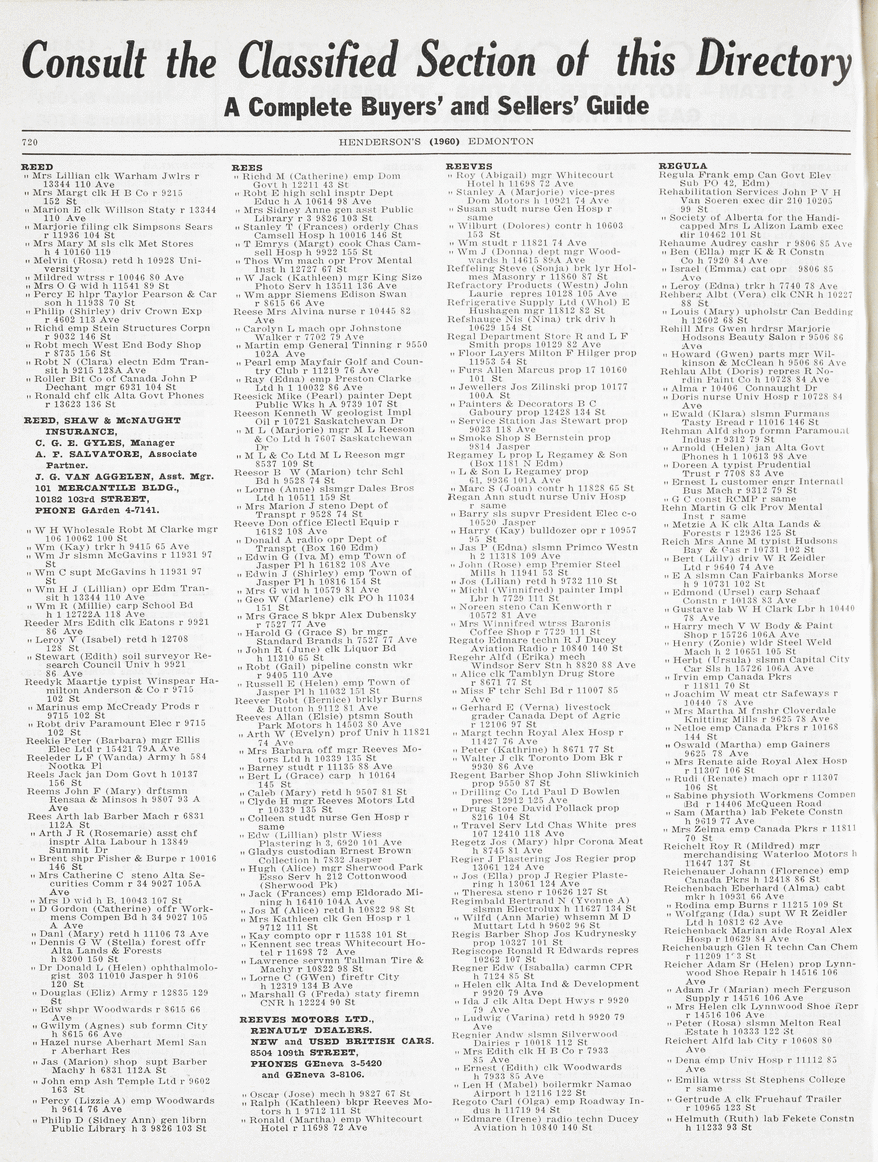 Consult the Classified Section of this Directory
A Complete Buyers' and Sellers' Guide
720
HENDERSON'S (1960) EDMONTON
REED
" Mrs Lillian clk Warham Jwlrs r
13344 110 Ave
" Mrs Margt clk H B Co r 9215
152 St
" Marion E clk Willson Staty r 13344
110 Ave
" Marjorie filing clk Simpsons Sears
r 11936 104 St
" Mrs Mary M sls clk Met Stores
h 4 10160 119
" Melvin (Rosa) retd h 10928 Uni-
versity
" Mildred wtrss r 10046 80 Ave
" Mrs O G wid h 11541 89 St
" Percy E hlpr Taylor Pearson & Car
son h 11938 70 St
" Philip (Shirley) driv Crown Exp
r 4602 113 Ave
" Richd emp Stein Structures Corpn
r 9032 146 St
" Robt mech West End Body Shop
r 8735 156 St
" Robt N (Clara) electn Edm Tran-
sit h 9215 128A Ave
" Roller Bit Co of Canada John P
Dechant mgr 6931 104 St
" Ronald chf clk Alta Govt Phones
r 13623 136 St
REED, SHAW & McNAUGHT
INSURANCE,
C. G. E. GYLES, Manager
A. F. SALVATORE, Associate
Partner.
J. G. VAN AGGELEN, Asst. Mgr.
101 MERCANTILE BLDG.,
10182 103rd STREET,
PHONE GArden 4-7141.
" W H Wholesale Robt M Clarke mgr
106 10062 100 St
" Wm (Kay) trkr h 9415 65 Ave
" Wm Jr slsmn McGavins r 11931 97
St
" Wm C supt McGavins h 11931 97
St
" Wm H J (Lillian) opr Edm Tran-
sit h 13344 110 Ave
" Wm R (Millie) carp School Bd
h 1 12722A 118 Ave
Reeder Mrs Edith clk Eatons r 9921
86 Ave
" Leroy V (Isabel) retd h 12708
128 St
" Stewart (Edith) soil surveyor Re-
search Council Univ h 9921
86 Ave
Reedyk Maartje typist Winspear Ha-
milton Anderson & Co r 9715
102 St
" Marinus emp McCready Prods r
9715 102 St
" Robt driv Paramount Elec r 9715
102 St
Reekie Peter (Barbara) mgr Ellis
Elec Ltd r 15421 79A Ave
Reeleder L F (Wanda) Army h 584
Nootka Pl
Reels Jack jan Dom Govt h 10137
156 St
Reems John F (Mary) drftsmn
Rensaa & Minsos h 9807 93 A
Ave
Rees Arth lab Barber Mach r 6831
112A St
" Arth J R (Rosemarie) asst chf
insptr Alta Labour h 13849
Summit Dr
" Brent shpr Fisher & Burpe r 10016
146 St
" Mrs Catherine C steno Alta Se-
curities Comm r 34 9027 105A
Ave
" Mrs D wid h B, 10043 107 St
" D Gordon (Catherine) offr Work-
mens Compen Bd h 34 9027 105
A Ave
" Danl (Mary) retd h 11106 73 Ave
" Dennis G W (Stella) forest offr
Alta Lands & Forests
h 8200 150 St
" Dr Donald L (Helen) ophthalmolo-
gist 303 11010 Jasper h 9106
120 St
" Douglas (Eliz) Army r 12835 129
St
" Edw shpr Woodwards r 8615 66
Ave
" Gwilym (Agnes) sub formn City
h 8615 66 Ave
" Hazel nurse Aberhart Meml San
r Aberhart Res
" Jas (Marion) shop supt Barber
Machy h 6831 112A St
" John emp Ash Temple Ltd r 9602
163 St
" Percy (Lizzie A) emp Woodwards
h 9614 76 Ave
" Philip D (Sidney Ann) gen librn
Public Library h 3 9826 103 St
REES
" Richd M (Catherine) emp Dom
Govt h 12211 43 St
" Robt E high schl insptr Dept
Educ h A 10614 98 Ave
" Mrs Sidney Anne gen asst Public
Library r 3 9826 103 St
" Stanley T (Frances) orderly Chas
Camsell Hosp h 10016 146 St
" T Emrys (Margt) cook Chas Cam-
sell Hosp h 9922 155 St
" Thos Wm mach opr Prov Mental
Inst h 12727 67 St
" W Jack (Kathleen) mgr King Size
Photo Serv h 13511 136 Ave
" Wm appr Siemens Edison Swan
r 8615 66 Ave
Reese Mrs Alvina nurse r 10445 82
Ave
" Carolyn L mach opr Johnstone
Walker r 7702 79 Ave
" Martin emp General Tinning r 9550
102A Ave
" Pearl emp Mayfair Golf and Coun-
try Club r 11219 76 Ave
" Ray (Edna) emp Preston Clarke
Ltd h 1 10032 86 Ave
Reesick Mike (Pearl) painter Dept
Public Wks h A 9739 107 St
Reeson Kenneth W geologist Impl
Oil r 10721 Saskatchewan Dr
" M L (Marjorie) mgr M L Reeson
& Co Ltd h 7607 Saskatchewan
Dr
" M L & Co Ltd M L Reeson mgr
8537 109 St
Reesor B W (Marion) tchr Schl
Bd h 9528 74 St
" Lorne (Anne) slsmgr Dales Bros
Ltd h 10511 159 St
" Mrs Marion J steno Dept of
Transpt r 9528 74 St
Reeve Don office Electl Equip r
16182 108 Ave
" Donald A radio opr Dept of
Transpt (Box 160 Edm)
" Edwin G (Iva M) emp Town of
Jasper Pl h 16182 108 Ave
" Edwin J (Shirley) emp Town of
Jasper Pl h 10816 154 St
" Mrs G wid h 10579 81 Ave
" Geo W (Marlene) clk PO h 11034
151 St
" Mrs Grace S bkpr Alex Dubensky
r 7527 77 Ave
" Harold G (Grace S) br mgr
Standard Brands h 7527 77 Ave
" John R (June) clk Liquor Bd
h 11310 65 St
" Robt (Gail) pipeline constn wkr
r 9405 110 Ave
" Russell E (Helen) emp Town of
Jasper Pl h 11032 151 St
Reever Robt (Bernice) brklyr Burns
& Dutton h 9112 81 Ave
Reeves Allan (Elsie) ptsmn South
Park Motors h 14503 80 Ave
" Arth W (Evelyn) prof Univ h 11821
74 Ave
" Mrs Barbara off mgr Reeves Mo-
tors Ltd h 10339 135 St
" Barney studt r 11135 88 Ave
" Bert L (Grace) carp h 10164
145 St
" Caleb (Mary) retd h 9507 81 St
" Clyde H mgr Reeves Motors Ltd
r 10339 135 St
" Colleen studt nurse Gen Hosp r
same
" Edw (Lillian) plstr Wiess
Plastering h 3, 6920 101 Ave
" Gladys custodian Ernest Brown
Collection h 7832 Jasper
" Hugh (Alice) mgr Sherwood Park
Esso Serv h 212 Cottonwood
(Sherwood Pk)
" Jack (Frances) emp Eldorado Mi-
ning h 16410 104A Ave
" Jos M (Alice) retd h 10822 98 St
" Mrs Kathleen clk Gen Hosp r 1
9712 111 St
" Kay compto opr r 11538 101 St
" Kennent sec treas Whitecourt Ho-
tel r 11698 72 Ave
" Lawrence servmn Tallman Tire &
Machy r 10822 98 St
" Lorne C (GWen) fireftr City
h 12319 134 B Ave
" Marshall G (Freda) staty firemn
CNR h 12224 90 St
REEVES MOTORS LTD.,
RENAULT DEALERS.
NEW and USED BRITISH CARS.
8504 109th STREET,
PHONES GEneva 3-5420
and GEneva 3-8106.
" Oscar (Jose) mech h 9827 67 St
" Ralph (Kathleen) bkpr Reeves Mo-
tors h 1 9712 111 St
" Ronald (Martha) emp Whitecourt
Hotel r 11698 72 Ave
REEVES
" Roy (Abigail) mgr Whitecourt
Hotel h 11698 72 Ave
" Stanley A (Marjorie) vice-pres
Dom Motors h 10921 74 Ave
" Susan studt nurse Gen Hosp r
same
" Wilburt (Dolores) contr h 10603
153 St
" Wm studt r 11821 74 Ave
" Wm J (Donna) dept mgr Wood-
wards h 14615 89A Ave
Reffeling Steve (Sonja) brk lyr Hol-
mes Masonry r 11860 87 St
Refractory Products (Westn) John
Laurie repres 10128 105 Ave
Refrigerative Supply Ltd (Whol) E
Hushagen mgr 11812 82 St
Refshauge Nis (Nina) trk driv h
10629 154 St
Regal Department Store R and L F
Smith props 10129 82 Ave
" Floor Layers Milton F Hilger prop
11953 54 St
" Furs Allen Marcus prop 17 10160
101 St
" Jewellers Jos Zilinski prop 10177
100A St
" Painters & Decorators B C
Gaboury prop 12428 134 St
" Service Station Jas Stewart prop
9023 118 Ave
" Smoke Shop S Bernstein prop
9814 Jasper
Regamey L prop L Regamey & Son
(Box 1181 N Edm)
" L & Son L Regamey prop
61, 9936 101A Ave
" Marc S (Joan) contr h 11828 65 St
Regan Ann studt nurse Univ Hosp
r same
" Barry sls supvr President Elec c-o
10520 Jasper
" Harry (Kay) bulldozer opr r 10957
95 St
" Jas P (Edna) slsmn Primco Westn
h 2 11318 109 Ave
" John (Rose) emp Premier Steel
Mills h 11941 53 St
" Jos (Lilian) retd h 9732 110 St
" Michl (Winnifred) painter Impl
Lbr h 7729 111 St
" Noreen steno Can Kenworth r
10572 81 Ave
" Mrs Winnifred wtrss Baronis
Coffee Shop r 7729 111 St
Regato Edmare techn R J Ducey
Aviation Radio r 10840 140 St
Regehr Alfd (Erika) mech
Windsor Serv Stn h 8820 88 Ave
" Alice clk Tamblyn Drug Store
r 8671 77 St
" Miss F tchr Schl Bd r 11007 85
Ave
" Gerhard E (Verna) livestock
grader Canada Dept of Agric
r 12106 97 St
" Margt techn Royal Alex Hosp r
11427 76 Ave
" Peter (Kathrine) h 8671 77 St
" Walter J clk Toronto Dom Bk r
9930 86 Ave
Regent Barber Shop John Sliwkinich
prop 9550 87 St
" Drilling Co Ltd Paul D Bowlen
pres 12912 125 Ave
" Drug Store David Pollack prop
8216 104 St
" Travel Serv Ltd Chas White pres
107 12410 118 Ave
Regetz Jos (Mary) hlpr Corona Meat
h 8745 81 Ave
Regier J Plastering Jos Regier prop
13061 124 Ave
" Jos (Ella) prop J Regier Plaste-
ring h 13061 124 Ave
" Theresa steno r 10626 127 St
Regimbald Bertrand N (Yvonne A)
slsmn Electrolux h 11627 134 St
" Wilfd (Ann Marie) whsemn M D
Muttart Ltd h 9602 96 St
Regis Barber Shop Jos Kudrynesky
prop 10327 101 St
Regiscope Ronald R Edwards repres
10262 107 St
Regner Edw (Isaballa) carmn CPR
h 7124 85 St
" Helen clk Alta Ind & Development
r 9920 79 Ave
" Ida J clk Alta Dept Hwys r 9920
79 Ave
" Ludwig (Varina) retd h 9920 79
Ave
Regnier Andw slsmn Silverwood
Dairies r 10018 112 St
" Mrs Edith clk H B Co r 7933
85 Ave
" Ernest (Edith) clk Woodwards
h 7933 85 Ave
" Len H (Mabel) boilermkr Namao
Airport h 12116 122 St
Regoto Carl (Olga) emp Roadway In-
dus h 11719 94 St
" Edmare (Irene) radio techn Ducey
Aviation h 10840 140 St
REGULA
Regula Frank emp Can Govt Elev
Sub PO 42, Edm)
Rehabilitation Services John P V H
Van Soeren exec dir 210 10205
99 St
" Society of Alberta for the Handi-
capped Mrs L Alzon Lamb exec
dir 10462 101 St
Rehaume Audrey cashr r 9806 85 Ave
" Ben (Ella) mgr K & R Constn
Co h 7920 84 Ave
" Israel (Emma) cat opr 9806 85
Ave
" Leroy (Edna) trkr h 7740 78 Ave
Rehberg Albt (Vera) clk CNR h 10227
88 St
" Louis (Mary) upholstr Can Bedding
h 12602 68 St
Rehill Mrs Gwen hrdrsr Marjorie
Hodsons Beauty Salon r 9506 86
Ave
" Howard (Gwen) parts mgr Wil-
kinson & McClean h 9506 86 Ave
Rehlau Albt (Doris) repres R No-
rdin Paint Co h 10728 84 Ave
" Alma r 10406 Connaught Dr
" Doris nurse Univ Hosp r 10728 84
Ave
" Ewald (Klara) slsmn Furmans
Tasty Bread r 11016 146 St
Rehman Alfd shop formn Paramount
Indus r 9312 79 St
" Arnold (Helen) jan Alta Govt
Phones h 1 10613 98 Ave
" Doreen A typist Prudential
Trust r 7708 83 Ave
" Ernest L customer engr Internatl
Bus Mach r 9312 79 St
" G C const RCMP r same
Rehn Martin G clk Prov Mental
Inst r same
" Metzie A K clk Alta Lands &
Forests r 12936 125 St
Reich Mrs Anne M typist Hudsons
Bay & Gas r 10731 102 St
" Bert (Lilly) driv W R Zeidler
Ltd r 9640 74 Ave
" E A slsmn Can Fairbanks Morse
h 9 10731 102 St
" Edmond (Ursel) carp Schaaf
Constn r 10138 83 Ave
" Gustave lab W H Clark Lbr h 10440
78 Ave
" Harry mech V W Body & Paint
Shop r 15726 106A Ave
" Henry (Zonie) wldr Steel Weld
Mach h 2 10651 105 St
" Herbt (Ursula) slsmn Capital City
Car Sls h 15726 106A Ave
" Irvin emp Canada Pkrs
r 11811 70 St
" Joachim W meat ctr Safeways r
10440 78 Ave
" Mrs Martha M fnshr Cloverdale
Knitting Mills r 9625 78 Ave
" Netloe emp Canada Pkrs r 10168
144 St
" Oswald (Martha) emp Gainers
9625 78 Ave
" Mrs Renate aide Royal Alex Hosp
r 11307 106 St
" Rudi (Renate) mach opr r 11307
106 St
" Sabine physioth Workmens Compen
Bd r 14406 McQueen Road
" Sam (Martha) lab Fekete Constn
h 9619 77 Ave
" Mrs Zelma emp Canada Pkrs r 11811
70 St
Reichelt Roy R (Mildred) mgr
merchandising Waterloo Motors h
11647 137 St
Reichenauer Johann (Florence) emp
Canada Pkrs h 12418 86 St
Reichenbach Eberhard (Alma) cabt
mkr h 10931 66 Ave
" Rodina emp Burns r 11215 109 St
" Wolfgang (Ida) supt W R Zeidler
Ltd h 10812 62 Ave
Reichenback Marian aide Royal Alex
Hosp r 10629 84 Ave
Reichenbaugh Glen R techn Can Chem
r 11209 St
Reicher Adam Sr (Helen) prop Lynn-
wood Shoe Repair h 14516 106
Ave
" Adam Jr (Marian) mech Ferguson
Supply r 14516 106 Ave
" Mrs Helen clk Lynnwood Shoe Repr
r 14516 106 Ave
" Peter (Rosa) slsmn Melton Real
Estate h 10333 122 St
Reichert Alfd lab City r 10608 80
Ave
" Dena emp Univ Hosp r 11112 85
Ave
" Emilia wtrss St Stephens College
r same
" Gertrude A clk Fruehauf Trailer
r 10965 123 St
" Helmuth (Ruth) lab Fekete Constn
h 11233 93 St